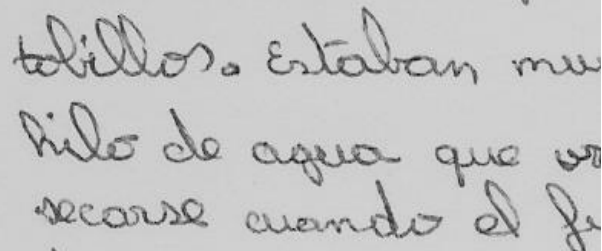 tobillos. Estaban mu
hilo de agua que
secarse cuando el fu